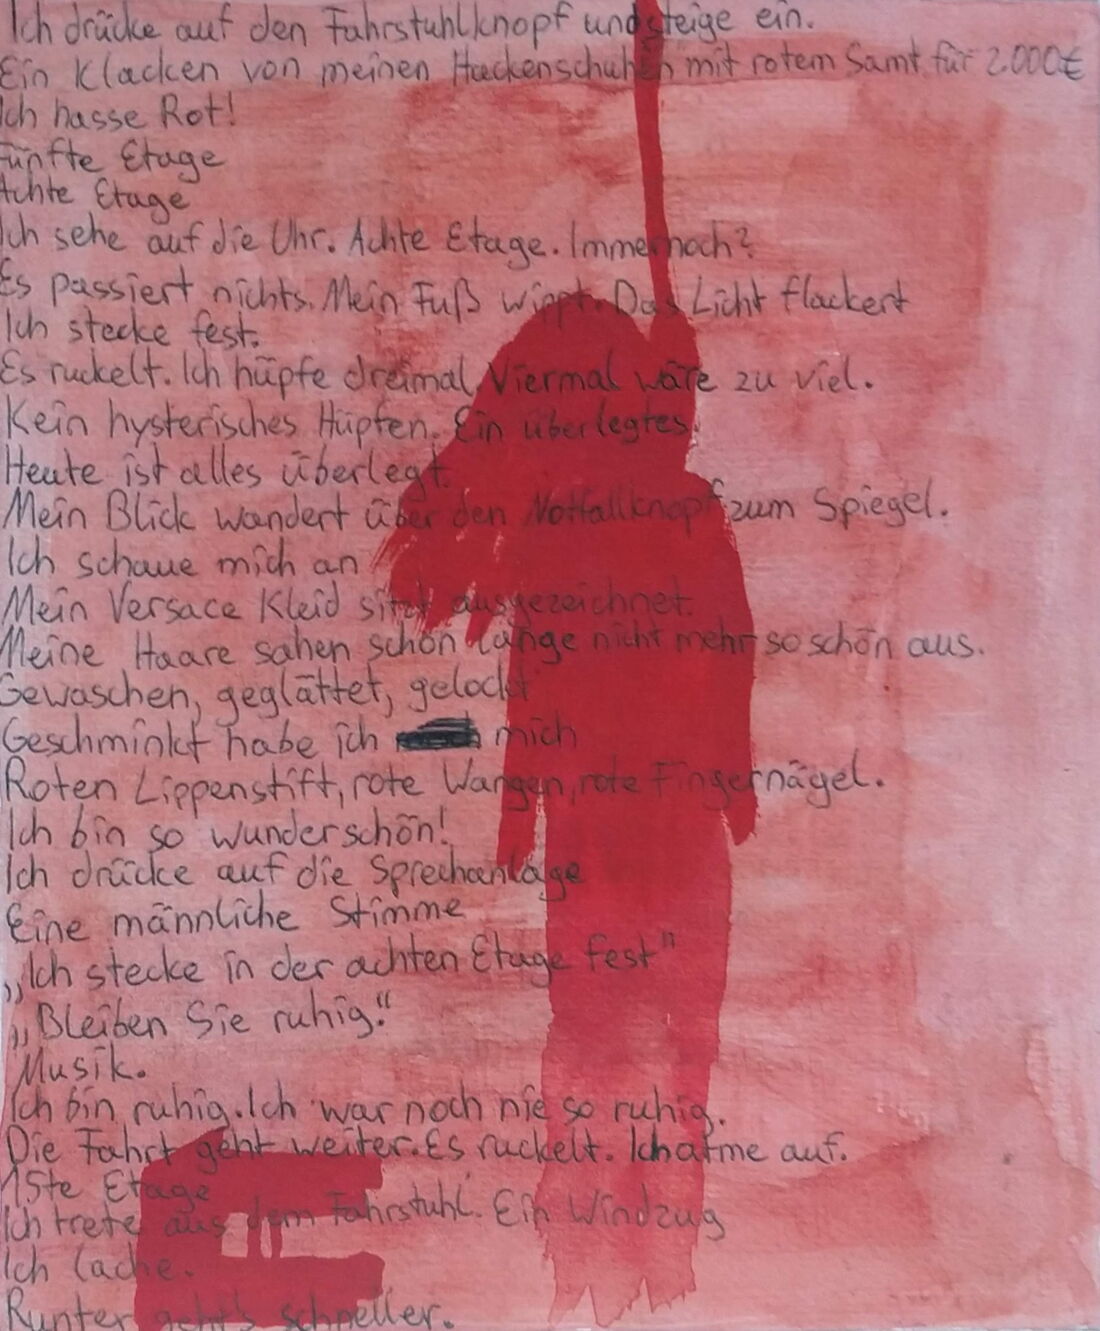 Ich drücke auf den Fahrstuhlknopf und steige ein.
Ein Klacken von meinen Hackenschuhen mit rotem Samt für 2.000€
Ich hasse Rot!
Fünfte Etage
Achte Etage
Ich sehe auf die Uhr. Achte Etage. Immernoch?
Es passiert nichts. Mein Fuß wippt. Das Licht flackert
Ich stecke fest.
Es ruckelt. Ich hüpfe dreimal, Viermal wäre zu viel.
Kein hysterisches Hüpfen. Ein überlegtes.
Heute ist alles überlegt.
Mein Blick wandert über den Notfallknopf zum Spiegel.
Ich schaue mich an
Mein Versace Kleid sitzt ausgezeichnet.
Meine Haare sahen schon lange nicht mehr so schön aus.
Gewaschen, geglättet, gelockt
Geschminkt habe ich mich
Roten Lippenstift, rote Wangen, rote Fingernägel.
Ich bin so wunderschön!
Ich drücke auf die Sprechanlage
Eine männliche Stimme
„Ich stecke in der achten Etage fest"
„Bleiben Sie ruhig."
Musik.
Ich bin ruhig. Ich war noch nie so ruhig.
Die Fahrt geht weiter. Es ruckelt. Ich atme auf.
15te Etage
Ich trete aus dem Fahrstuhl. Ein Windzug
Ich lache.
Runter geht's schneller.